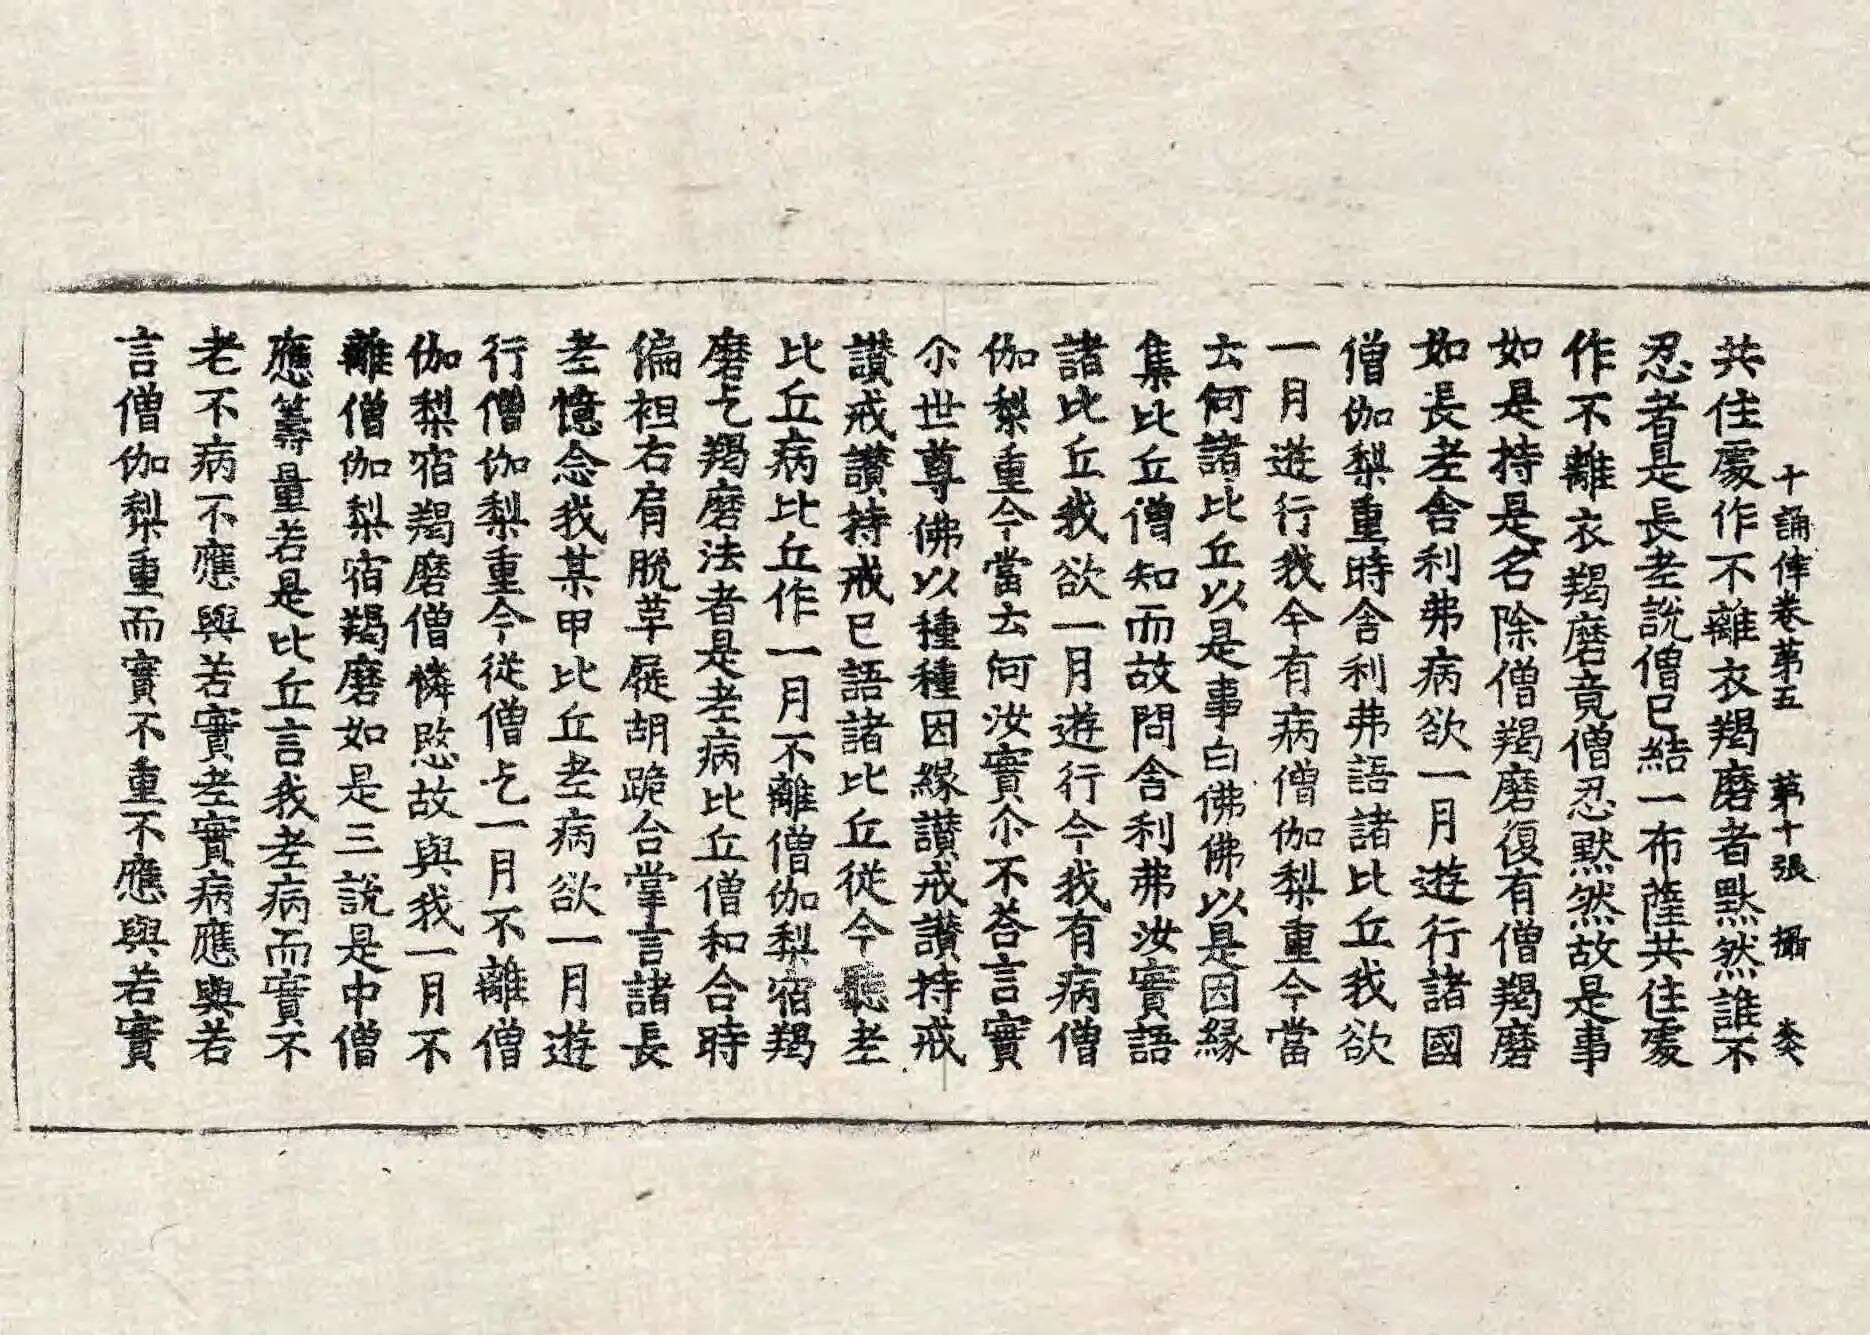 十誦律卷第五　第十張　攝
共住處作不離衣羯磨者默然誰不
忍者是長老說僧已結一布薩共住處
作不離衣羯磨竟僧忍默然故是事
如是持是名除僧羯磨復有僧羯磨
如長老舍利弗病欲一月遊行諸國
僧伽梨重時舍利弗語諸比丘我欲
一月遊行我今有病僧伽梨重今當
云何諸比丘以是事白佛佛以是因緣
集比丘僧知而故問舍利弗汝實語
諸比丘我欲一月遊行今我有病僧
伽梨重今當云何汝實尒不荅言實
尒世尊佛以種種因緣讃戒讃持戒
讃戒讃持戒已語諸比丘從今聽老
比丘病比丘作一月不離僧伽梨宿羯
磨乞羯磨法者是老病比丘僧和合時
偏袒右肩脫草屣胡跪合掌言諸長
老憶念我某甲比丘老病欲一月遊
行僧伽梨重今從僧乞一月不離僧
伽梨宿羯磨僧憐愍故與我一月不
離僧伽梨宿羯磨如是三說是中僧
應籌量若是比丘言我老病而實不
老不病不應與若實老實病應與若
言僧伽梨重而實不重不應與若實